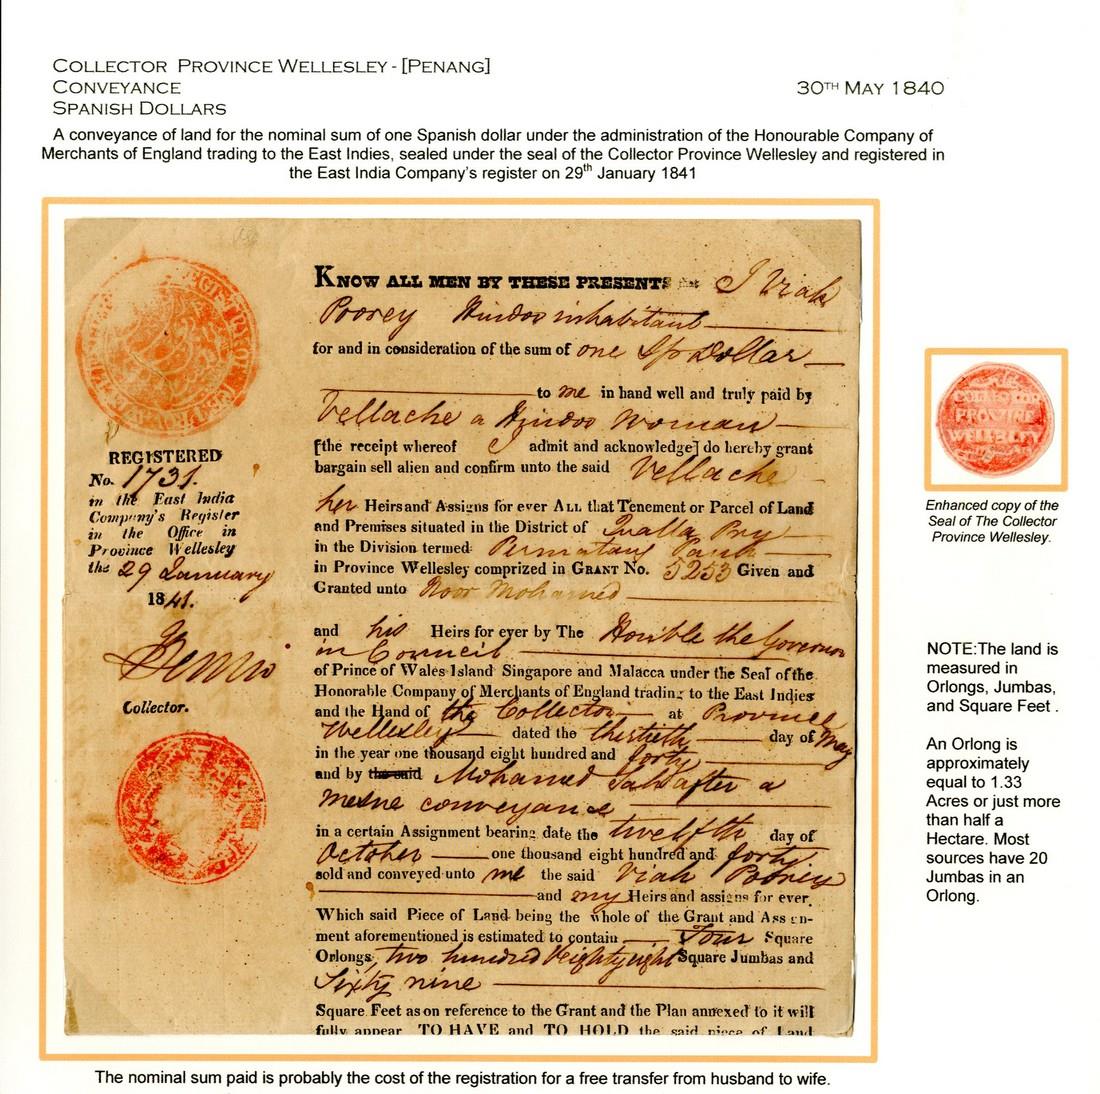 COLLECTOR PROVINCE WELLESLEY - [PENANG]
CONVEYANCE
30TH MAY 1840
SPANISH DOLLARS
A conveyance of land for the nominal sum of one Spanish dollar under the administration of the Honourable Company of
Merchants of England trading to the East Indies, sealed under the seal of the Collector Province Wellesley and registered in
the East India Company's register on 29th January 1841
KNOW ALL MEN BY THESE PRESENTS I Viah
Poorey Hindoo inhabitant
for and in consideration of the sum of one Sp Dollar
to me in hand well and truly paid by
Vellache a Hindoo Woman
[the receipt whereof I admit and acknowledge] do hereby grant
bargain sell alien and confirm unto the said Vellache
her Heirs and Assigns for ever ALL that Tenement or Parcel of Land
and Premises situated in the District of Qualla Pry
in the Division termed Permatang
in Province Wellesley comprized in GRANT NO. 5253 Given and
Granted unto Noor Mohamed
and his Heirs for ever by The Hon'ble the Governor
in Council
of Prince of Wales Island Singapore and Malacca under the Seal of the
Honorable Company of Merchants of England trading to the East Indies
and the Hand of the Collector at Province
Wellesley dated the thirtieth day of May
in the year one thousand eight hundred and forty
and by the said Mohamed after a
mesne conveyance
in a certain Assignment bearing date the twelfth day of
October one thousand eight hundred and forty
sold and conveyed unto me the said Viah Poorey
and my Heirs and assigns for ever.
Which said Piece of Land being the whole of the Grant and Assign-
ment aforementioned is estimated to contain Four Square
Orlongs, two hundred & eighty eight Square Jumbas and
Sixty nine
Square Feet as on reference to the Grant and the Plan annexed to it will
fully appear TO HAVE and TO HOLD the said piece of Land
REGISTERED
No. 1731.
in the East India
Company's Register
in the Office in
Province Wellesley
the 29 January
1841.
Collector.
COLLECTOR
PROVINCE
WELLESLEY
Enhanced copy of the
Seal of The Collector
Province Wellesley.
NOTE:The land is
measured in
Orlongs, Jumbas,
and Square Feet .
An Orlong is
approximately
equal to 1.33
Acres or just more
than half a
Hectare. Most
sources have 20
Jumbas in an
Orlong.
The nominal sum paid is probably the cost of the registration for a free transfer from husband to wife.